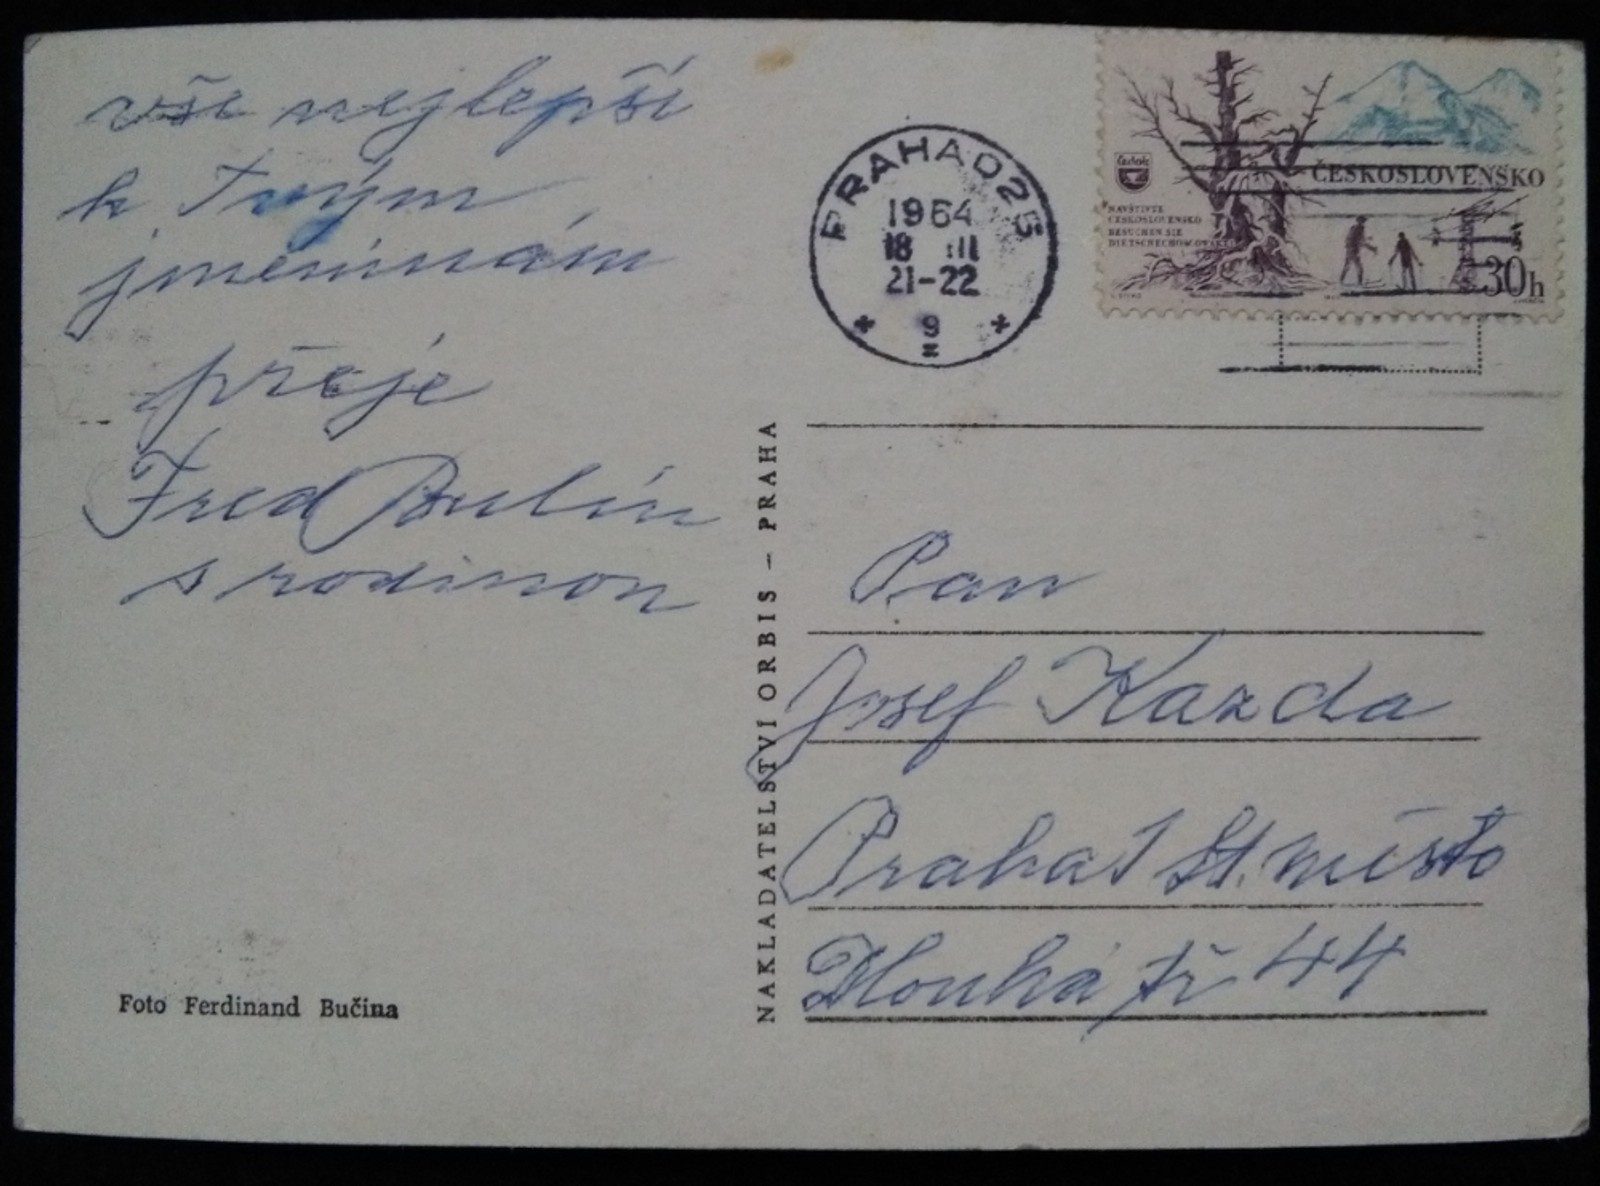 vše nejlepší
k Tvým
jmeninám
přeje
Fred Bulín
s rodinou
Foto Ferdinand Bučina
NAKLADATELSTVÍ ORBIS – PRAHA
PRAHA 025
1964
18 III
21-22
9
Čedok
NAVŠTIVTE
ČESKOSLOVENSKO
BESUCHEN SIE
DIE TSCHECHOSLOWAKEI
ČESKOSLOVENSKO
30h
Pan
Josef Kazda
Praha 1 St. město
Dlouhá tř 44